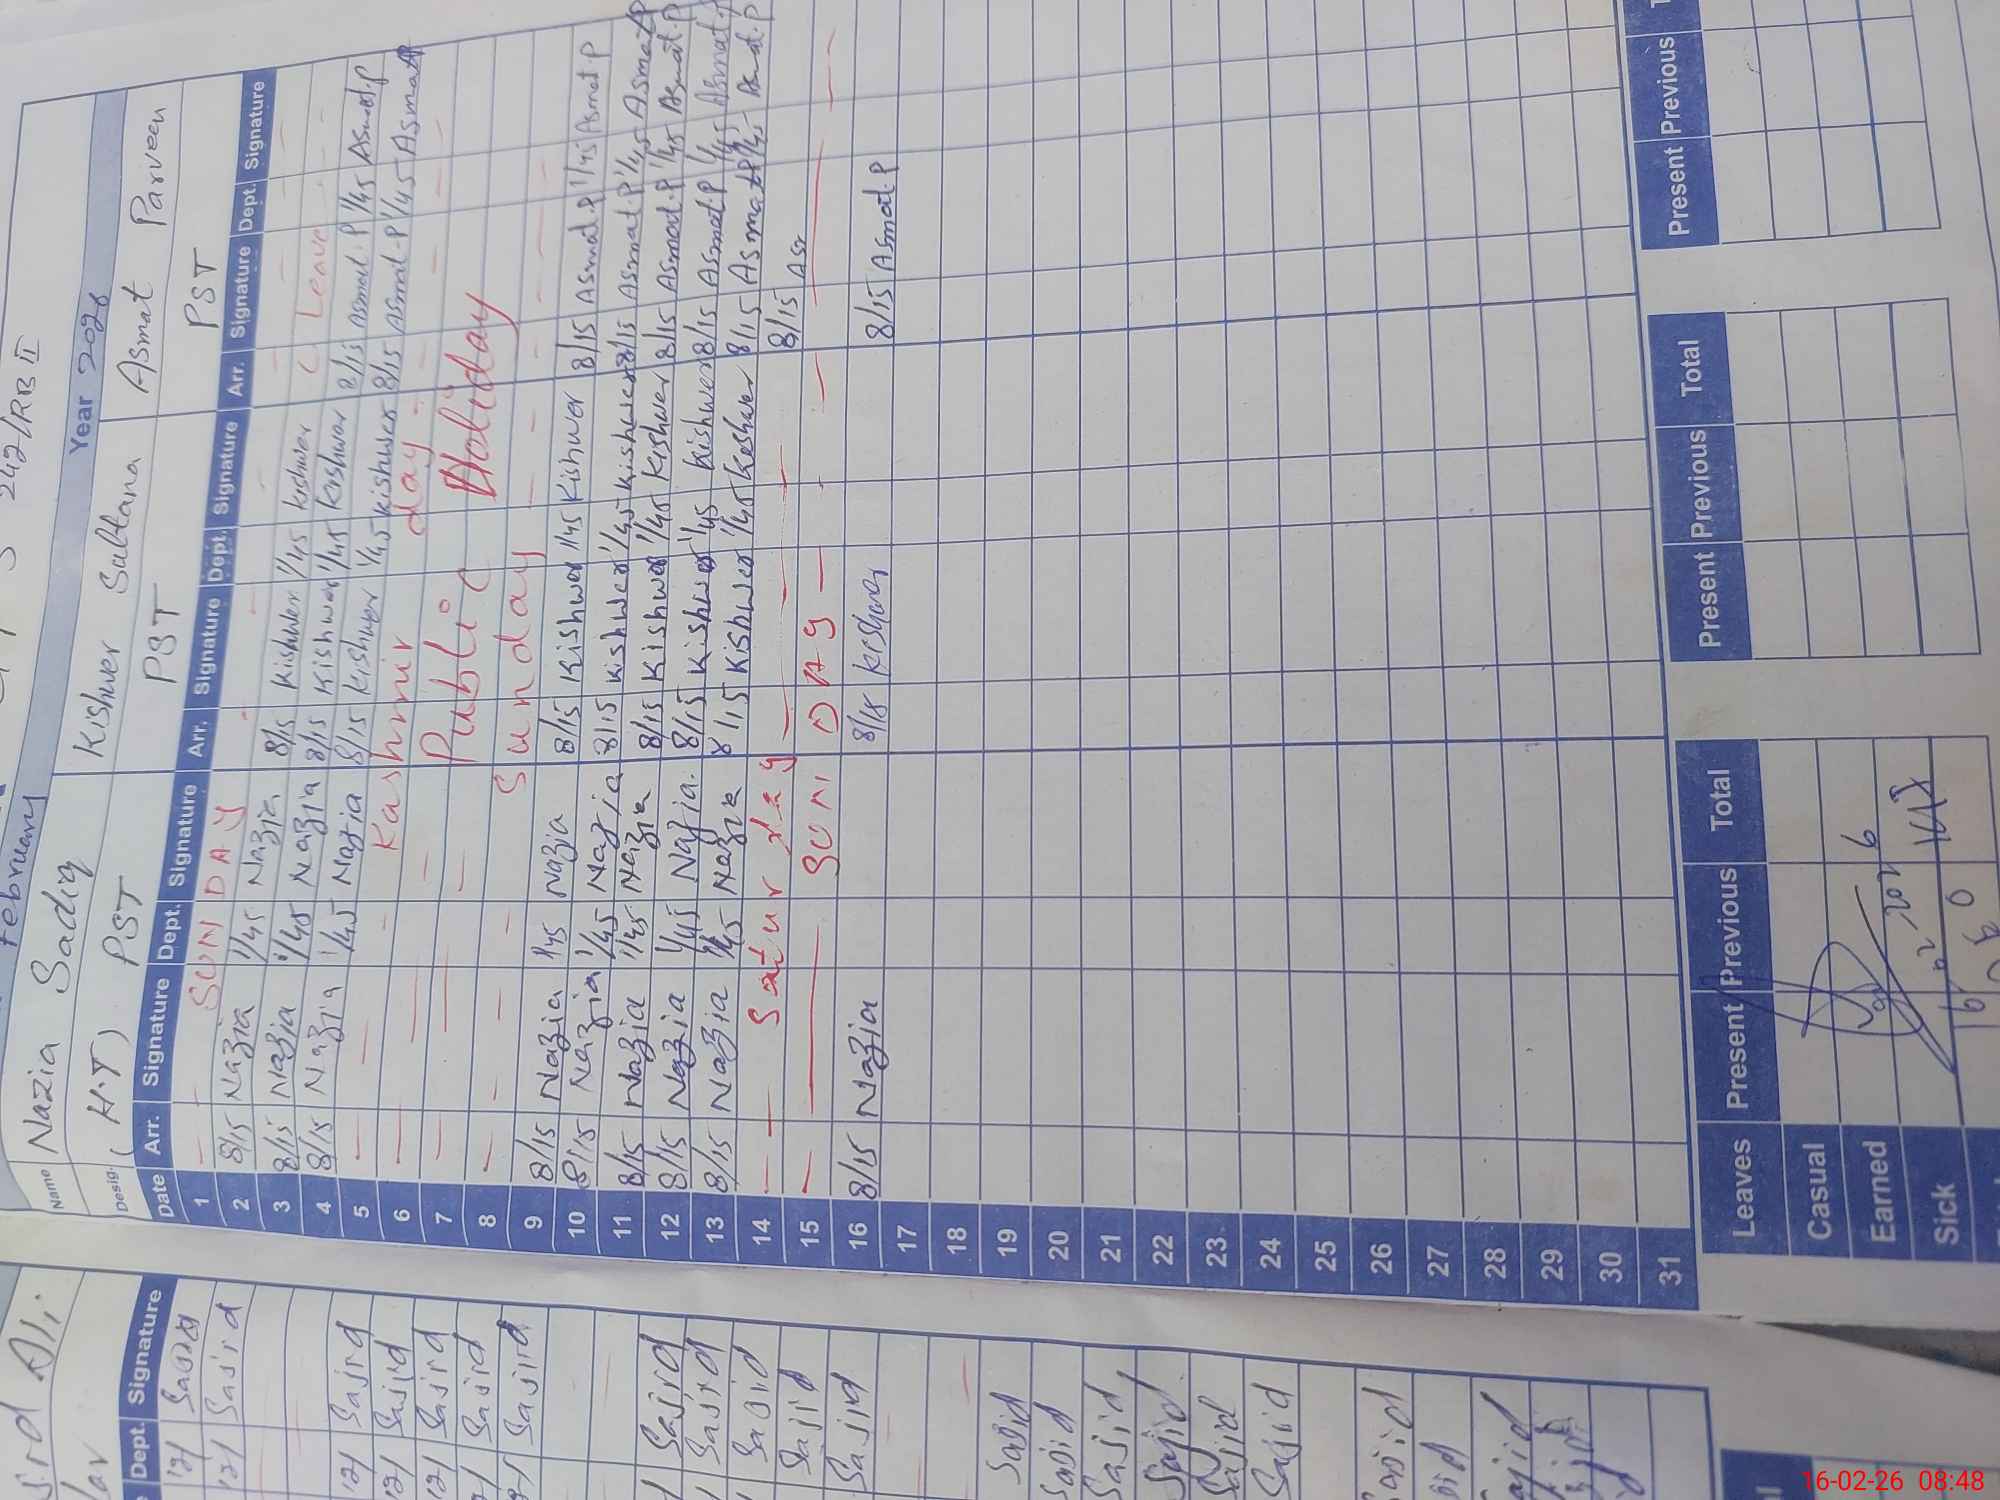 February
242/RB II
Year 2026
Name Nazia Sadiq Kishwer Sultana Asmat Parveen
Desig. (H.T) PST PST PST
Date Arr. Signature Dept. Signature Arr. Signature Dept. Signature Arr. Signature Dept. Signature
1 — SUNDAY
2 8/15 Nazia 1/45 Nazia 8/15 Kishwer 1/45 Kishwer C Leave
3 8/15 Nazia 1/45 Nazia 8/15 Kishwer 1/45 Kishwer 8/15 Asmat.P 1/45 Asmat.P
4 8/15 Nazia 1/45 Nazia 8/15 Kishwer 1/45 Kishwer 8/15 Asmat.P 1/45 Asmat.P
5 — Kashmir day
6 — Public Holiday
7 —
8 — Sunday
9 8/15 Nazia 1/45 Nazia 8/15 Kishwer 1/45 Kishwer 8/15 Asmat.P 1/45 Asmat.P
10 8/15 Nazia 1/45 Nazia 8/15 Kishwer 1/45 Kishwer 8/15 Asmat.P 1/45 Asmat.P
11 8/15 Nazia 1/45 Nazia 8/15 Kishwer 1/45 Kishwer 8/15 Asmat.P 1/45 Asmat.P
12 8/15 Nazia 1/45 Nazia 8/15 Kishwer 1/45 Kishwer 8/15 Asmat.P 1/45 Asmat.P
13 8/15 Nazia 1/45 Nazia 8/15 Kishwer 1/45 Keshwer 8/15 Asmat.P 1/45 Asmat.P
14 — Saturday — 8/15 Asr
15 — SUN DAY —
16 8/15 Nazia 8/15 Kishwer 8/15 Asmat.P
17
18
19
20
21
22
23
24
25
26
27
28
29
30
31
Leaves Present Previous Total Present Previous Total Present Previous
Casual
Earned
Sick
Ali
Dept. Signature
12/ Sajid
12/ Sajid
12/ Sajid
12/ Sajid
12/ Sajid
Sajid
Sajid
Sajid
Sajid
Sajid
Sajid
Sajid
Sajid
Sajid
Sajid
Sajid
Sajid
Sajid
16-02-26 08:48